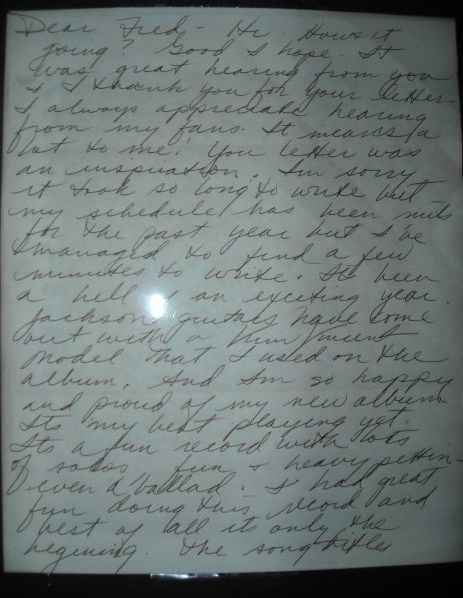 Dear Fred - Hi Hows it
going? Good I hope - It
was great hearing from you
& I thank you for your letter -
I always appreciate hearing
from my fans. It means a
lot to me! You letter was
an inspiration. Im sorry
it took so long to write but
my schedule has been nuts
for the past year but I've
managed to find a few
minutes to write. Its been
a hell of an exciting year.
Jackson guitars have come
out with a
model that I used on the
album. And Im so happy
and proud of my new album
Its my best playing yet.
Its a fun record with lots
of solos fun & heavy
even a ballad. I had great
fun doing this record and
best of all its only the
begining. The song titles